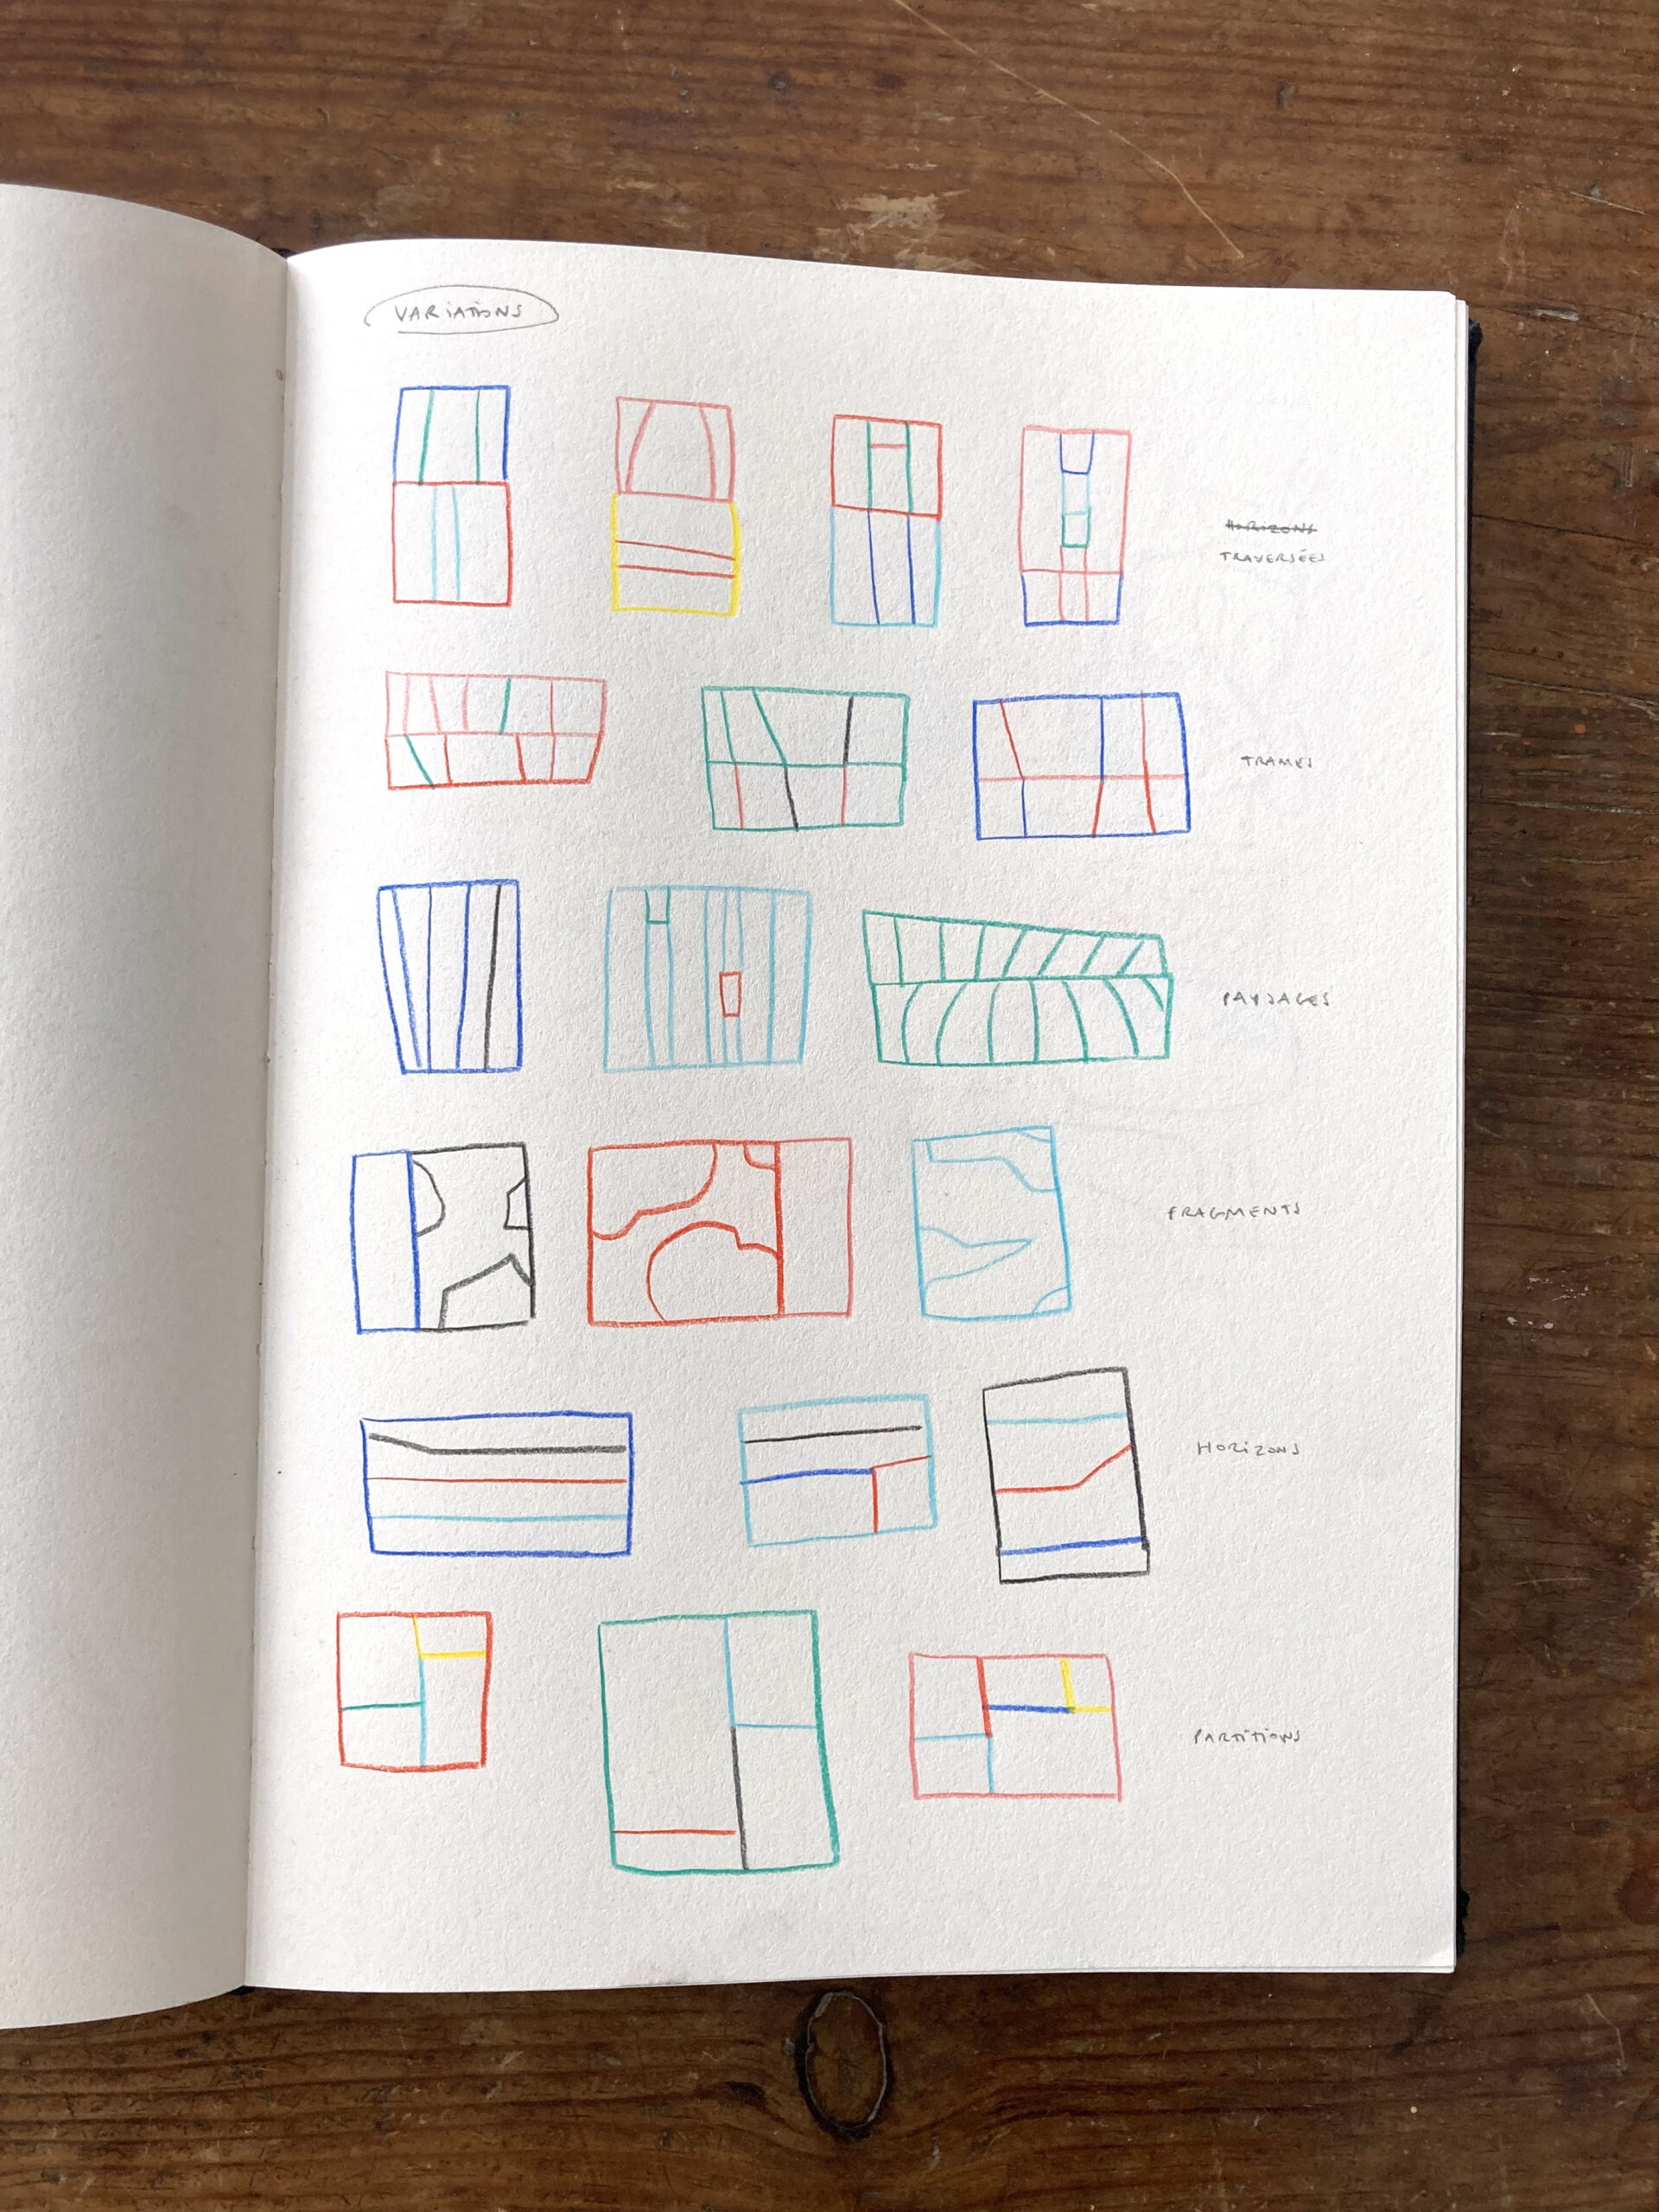 VARIATIONS
HORIZONS
TRAVERSÉES
TRAMES
PAYSAGES
FRAGMENTS
HORIZONS
PARTITIONS